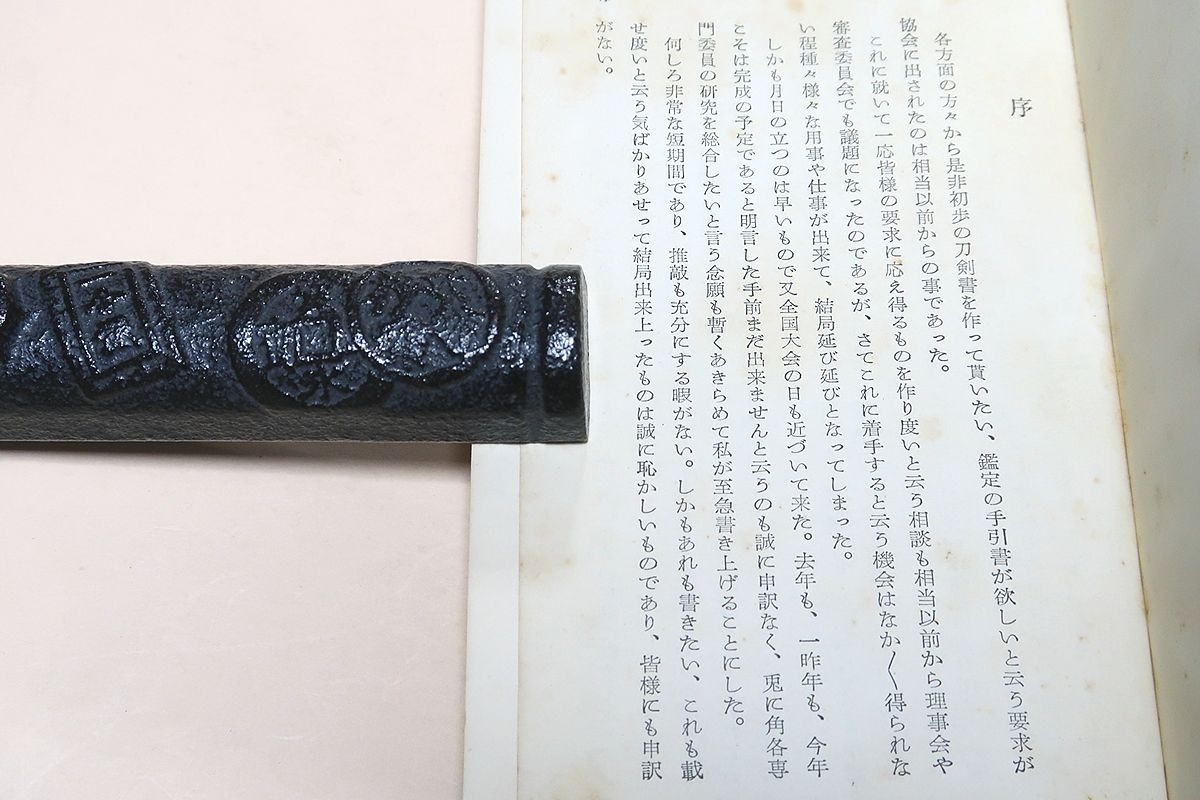 序
各方面の方々から是非初歩の刀剣書を作って貰いたい、鑑定の手引書が欲しいと云う要求が
協会に出されたのは相当以前からの事であった。
これに就いて一応皆様の要求に応え得るものを作り度いと云う相談も相当以前から理事会や
審査委員会でも議題になったのであるが、さてこれに着手すると云う機会はなか〳〵得られな
い程種々様々な用事や仕事が出来て、結局延び延びとなってしまった。
しかも月日の立つのは早いもので又全国大会の日も近づいて来た。去年も、一昨年も、今年
こそは完成の予定であると明言した手前まだ出来ませんと云うのも誠に申訳なく、兎に角各専
門委員の研究を総合したいと言う念願も暫くあきらめて私が至急書き上げることにした。
何しろ非常な短期間であり、推敲も充分にする暇がない。しかもあれも書きたい、これも載
せ度いと云う気ばかりあせって結局出来上ったものは誠に恥かしいものであり、皆様にも申訳
がない。